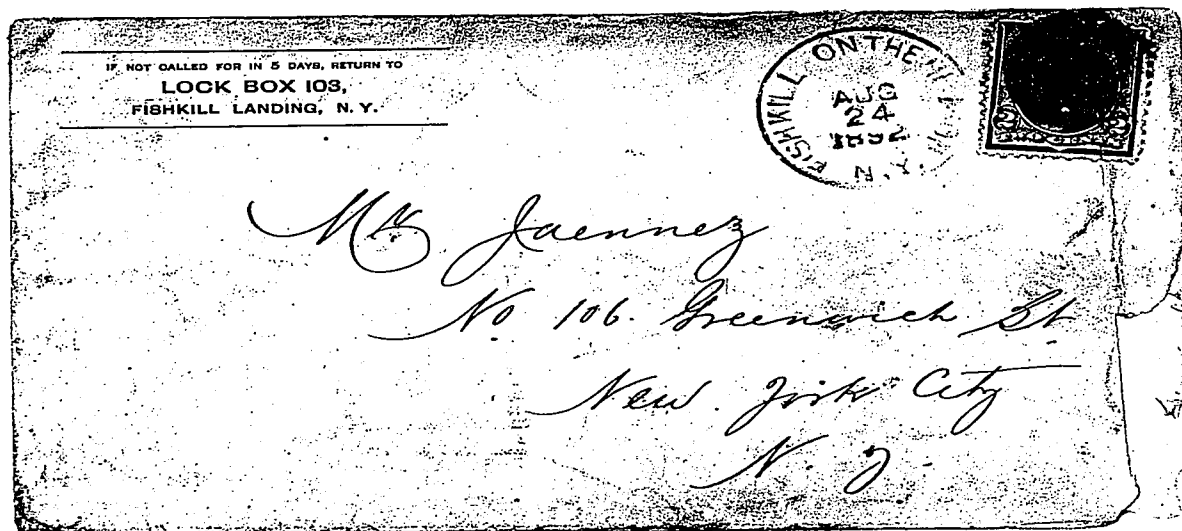 IF NOT CALLED FOR IN 5 DAYS, RETURN TO
LOCK BOX 103,
FISHKILL LANDING, N. Y.
FISHKILL ON THE N.Y.
AUG
24
1892
Mr. Jaennez
No 106. Greenwich St
New York City
N. Y.